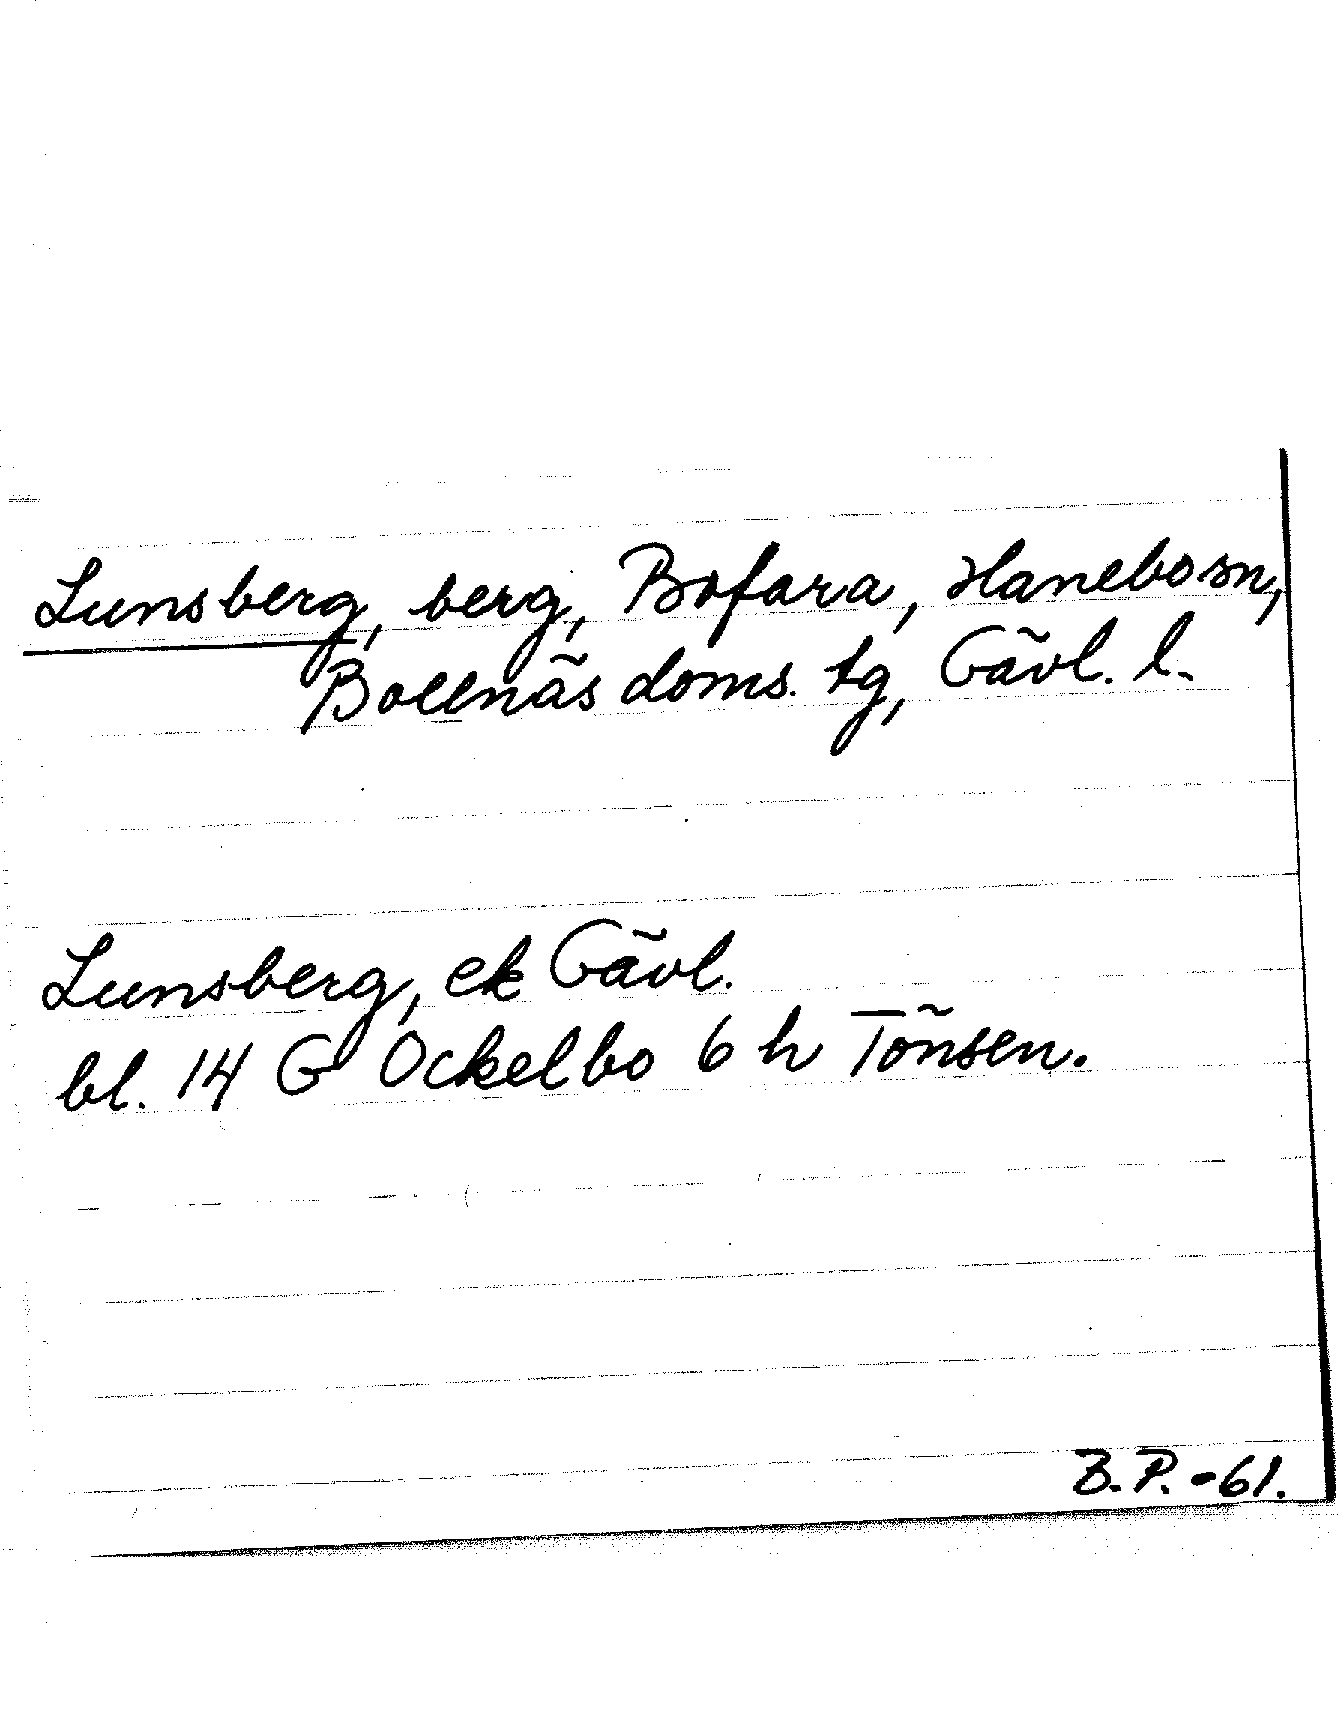 Lunsberg, berg, Bofara, Hanebo sn,
Bollnäs doms. tg, Gävl. l.
Lunsberg, ek Gävl.
bl. 14 G Ockelbo 6 h Tönsen.
B.P.-61.